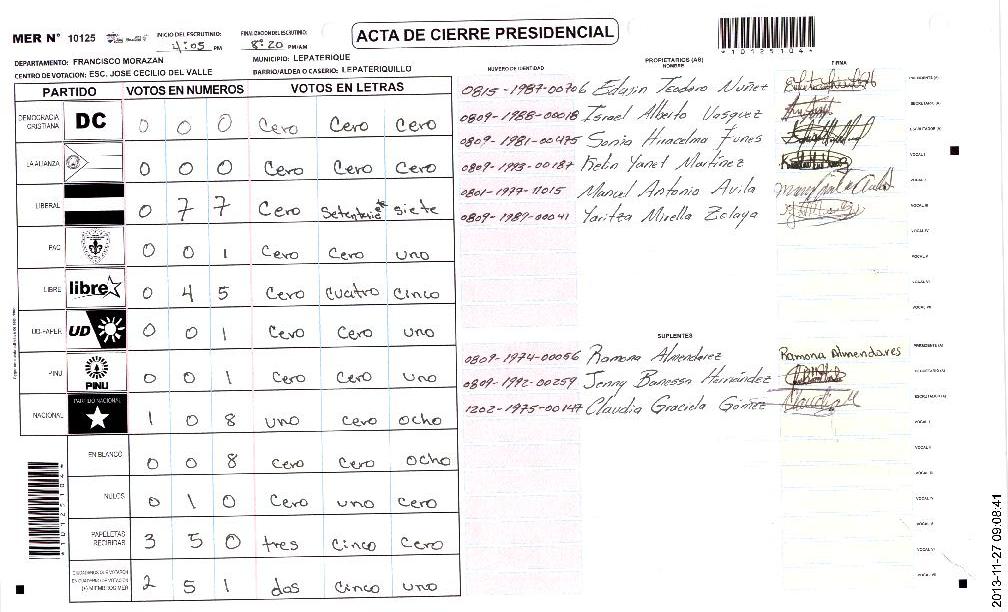 MER N° 10125
INICIO DEL ESCRUTINIO: 4:05 PM
FINALIZACION DEL ESCRUTINIO: 8:20 PM/AM
ACTA DE CIERRE PRESIDENCIAL
*10125104*
DEPARTAMENTO: FRANCISCO MORAZAN
MUNICIPIO: LEPATERIQUE
CENTRO DE VOTACION: ESC. JOSE CECILIO DEL VALLE
BARRIO/ALDEA O CASERIO: LEPATERIQUILLO
PARTIDO VOTOS EN NUMEROS VOTOS EN LETRAS
DEMOCRACIA CRISTIANA DC 0 0 0 Cero Cero Cero
LA ALIANZA 0 0 0 Cero Cero Cero
LIBERAL 0 7 7 Cero Setenta siete
PAC 0 0 1 Cero Cero uno
LIBRE libre 0 4 5 Cero cuatro cinco
UD-FAPER UD 0 0 1 Cero Cero uno
PINU PINU 0 0 1 Cero Cero uno
NACIONAL PARTIDO NACIONAL 1 0 8 uno Cero ocho
EN BLANCO 0 0 8 Cero Cero ocho
NULOS 0 1 0 Cero uno Cero
PAPELETAS RECIBIDAS 3 5 0 tres Cinco Cero
CIUDADANOS QUE VOTARON EN CUADERNO DE VOTACION (+) MIEMBROS MER 2 5 1 dos Cinco uno
*10125104*
NUMERO DE IDENTIDAD PROPIETARIOS (AS) NOMBRE FIRMA
0815-1987-00706 Eduin Teodoro Nuñez PRESIDENTE (A)
0809-1988-00018 Israel Alberto Vasquez SECRETARIO (A)
0809-1981-00475 Sonia Funes ESCRUTADOR (A)
0809-1993-00187 Kelin Yanet Martinez VOCAL I
0801-1977-11015 Manuel Antonio Avila VOCAL II
0809-1989-00041 Yaritza Mirella Zelaya VOCAL III
VOCAL IV
VOCAL V
VOCAL VI
VOCAL VII
SUPLENTES
0809-1974-00056 Ramona Almendarez Ramona Almendares PRESIDENTE (A)
0809-1992-00259 Jenny Banessa Hernández SECRETARIO (A)
1202-1975-00147 Claudia Graciela Gómez ESCRUTADOR (A)
VOCAL I
VOCAL II
VOCAL III
VOCAL IV
VOCAL V
VOCAL VI
VOCAL VII
2013-11-27 09:08:41